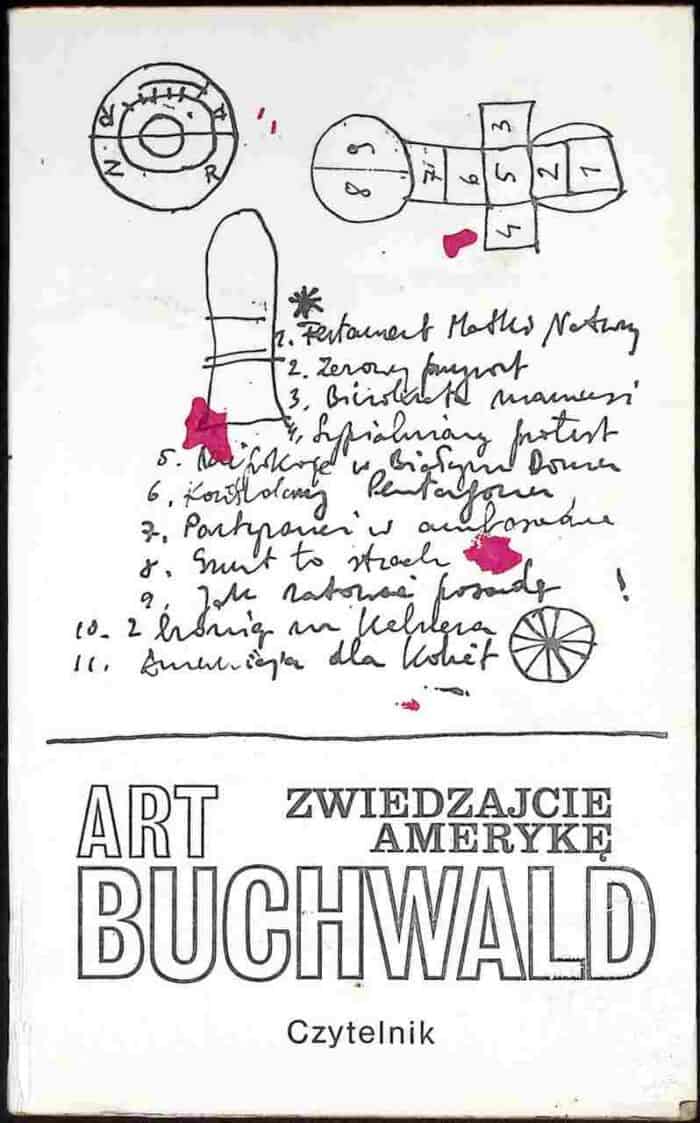 N R
8 9 7 6 3 5 4 2 1
1. Testament Matki Natury
2. Zerowy przyrost
3. Biurokrata mamusi
4. Sypialniany protest
5. w Białym Domu
6. Pentagonu
7. Partyzanci w ambasadzie
8. Grunt to strach
9. Jak ratować posadę !
10. Z bronią na kelnera
11. Amunicja dla kobiet
ART
ZWIEDZAJCIE
AMERYKĘ
BUCHWALD
Czytelnik